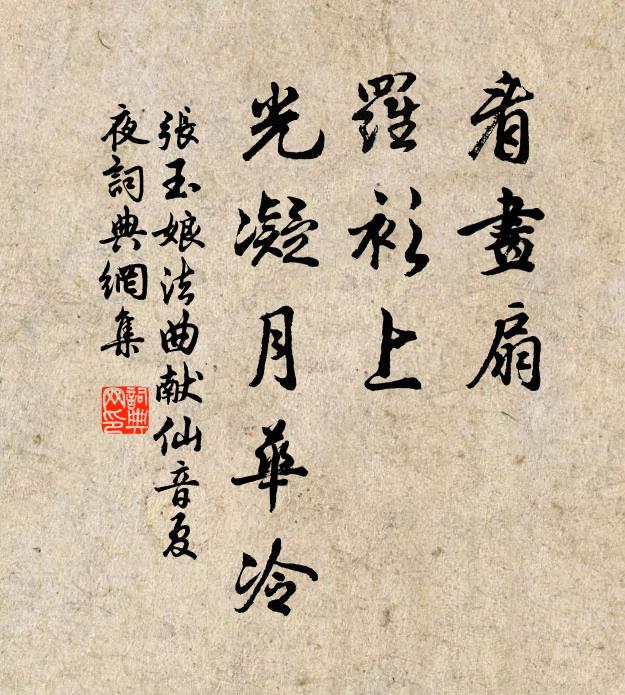 看畫扇
羅衫上
光凝月華冷
張玉娘法曲献仙音夏
夜詞典網集
詞典
网印